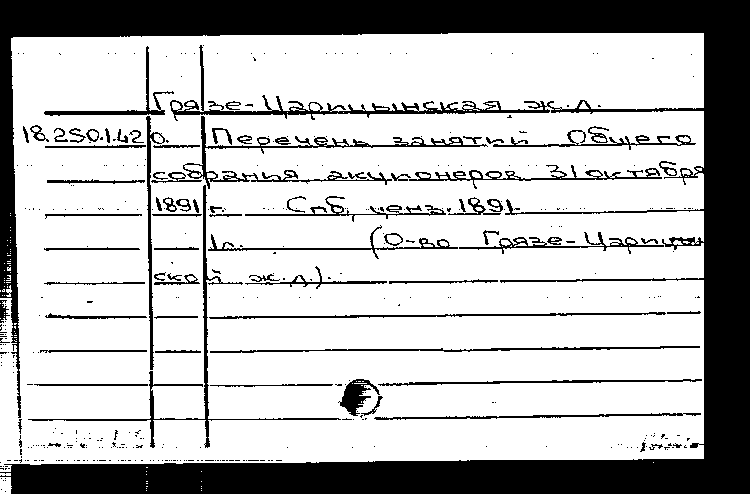 Грязе-Царицынская ж.д.
18.250.1.420. Перечень занятий Общего
собрания акционеров 31 октября
1891 г. Спб, ценз. 1891.
1л. (О-во Грязе-Царицын
ской ж.д.).